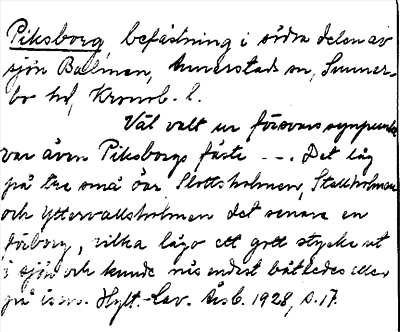 Piksborg, befästning i södra delen av
sjön Bolmen, Annerstads sn, Sunner-
bo hd, Kronob. l.
Väl valt ur försvarssynpunkt
var även Piksborgs fäste - - -. Det låg
på tre små öar Slottsholmen, Stallholmen
och Yttervallsholmen det senare en
förborg, vilka lågo ett gott stycke ut
i sjön och kunde nås endast båtledes eller
på isen. Hylt.-Cav. Årsb. 1928, s. 17.